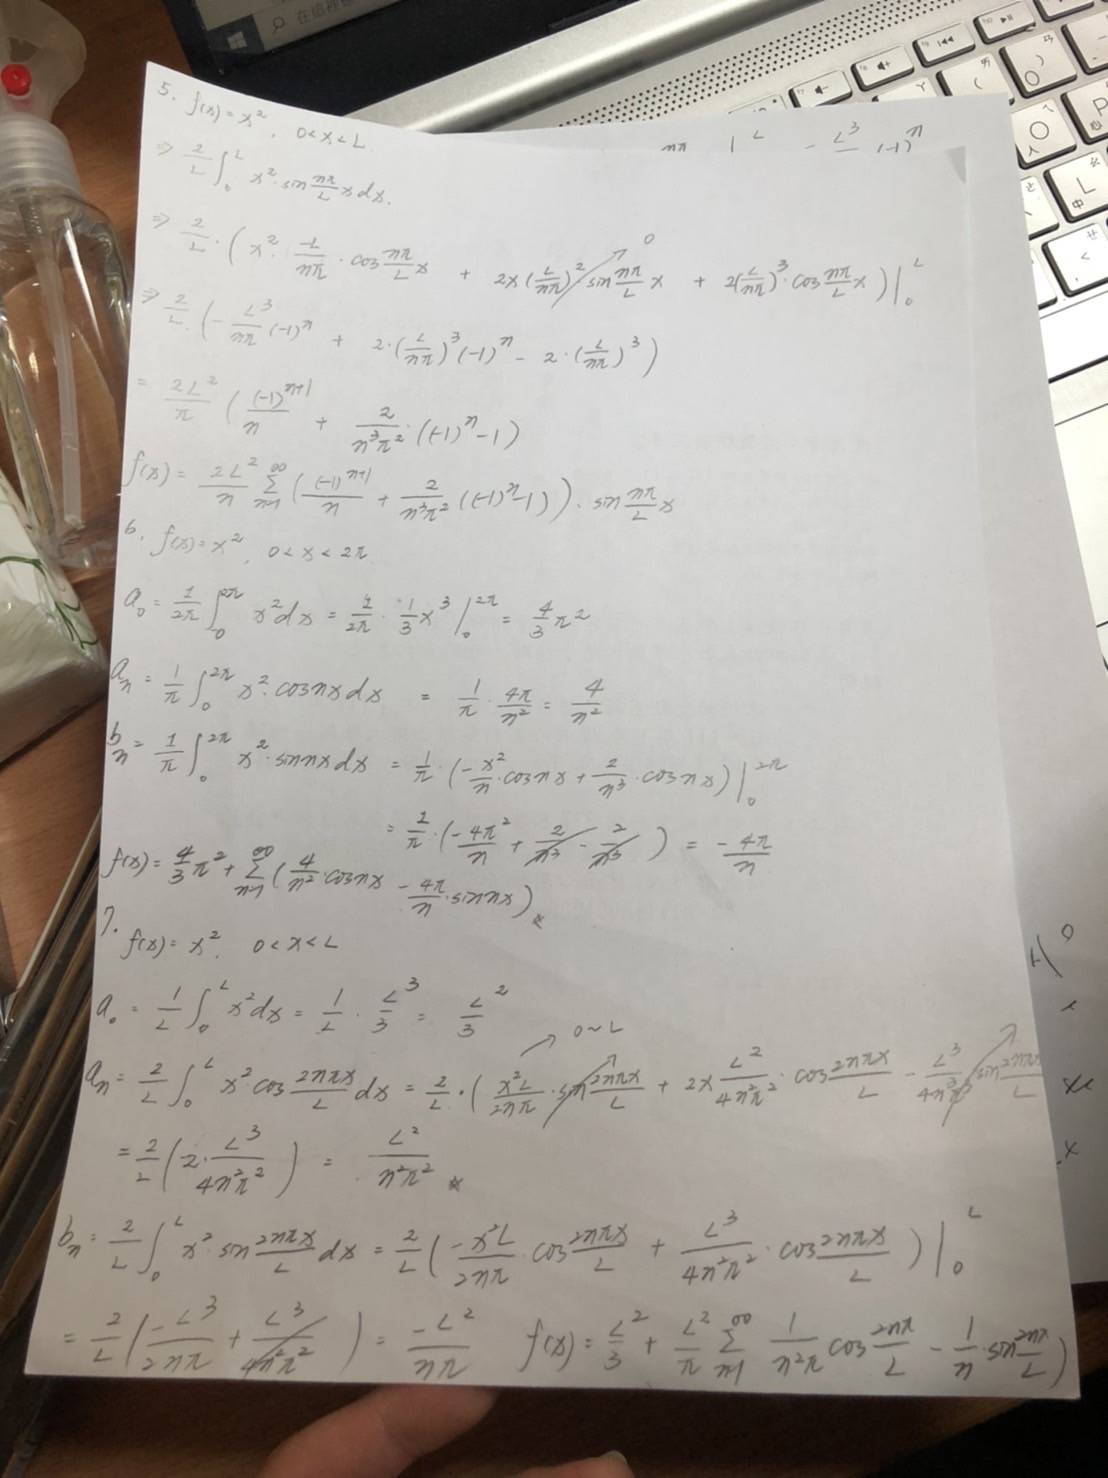 在這裡
mπ | L - L³ (-1)ⁿ
5. f(x) = x², 0<x<L
⇒ 2/L ∫₀ᴸ x²·sin nπ/L x dx.
⇒ 2/L·(x²·-L/nπ·cos nπ/L x + 2x(L/nπ)² sin nπ/L x → 0 + 2(L/nπ)³·cos nπ/L x)|₀ᴸ
⇒ 2/L·(-L³/nπ (-1)ⁿ + 2·(L/nπ)³(-1)ⁿ - 2·(L/nπ)³)
= 2L²/π ((-1)ⁿ⁺¹/n + 2/n³π²·(-1)ⁿ-1)
f(x) = 2L²/π Σₙ₌₁^∞ ((-1)ⁿ⁺¹/n + 2/n³π² (-1)ⁿ-1))·sin nπ/L x
6. f(x) = x², 0<x<2π
a₀ = 1/2π ∫₀^2π x²dx = 1/2π·1/3 x³|₀^2π = 4/3 π²
aₙ = 1/π ∫₀^2π x²·cosnxdx = 1/π·4π/n² = 4/n²
bₙ = 1/π ∫₀^2π x²·sinnxdx = 1/π·(-x²/n·cosnx + 2/n³·cosnx)|₀^2π
= 1/π·(-4π²/n + 2/n³ - 2/n³) = -4π/n
f(x) = 4/3 π² + Σₙ₌₁^∞ (4/n²·cosnx -4π/n·sinnx)
7.
f(x) = x², 0<x<L
a₀ = 1/L ∫₀ᴸ x²dx = 1/L·L³/3 = L²/3
→ 0~L
aₙ = 2/L ∫₀ᴸ x²·cos 2nπx/L dx = 2/L·(x²L/2nπ·sin 2nπx/L + 2x L²/4n²π²·cos 2nπx/L - L³/4n³π³ sin 2nπx/L
= 2/L(2·L³/4n²π²) = L²/n²π²
bₙ = 2/L ∫₀ᴸ x²·sin 2nπx/L dx = 2/L(-x²L/2nπ·cos 2nπx/L + L³/4n²π²·cos 2nπx/L)|₀ᴸ
= 2/L(-L³/2nπ + L³/4n²π²) = -L²/nπ f(x) = L²/3 + L²/π Σₙ₌₁^∞ 1/n²π cos 2nπ/L - 1/n·sin 2nπ/L)